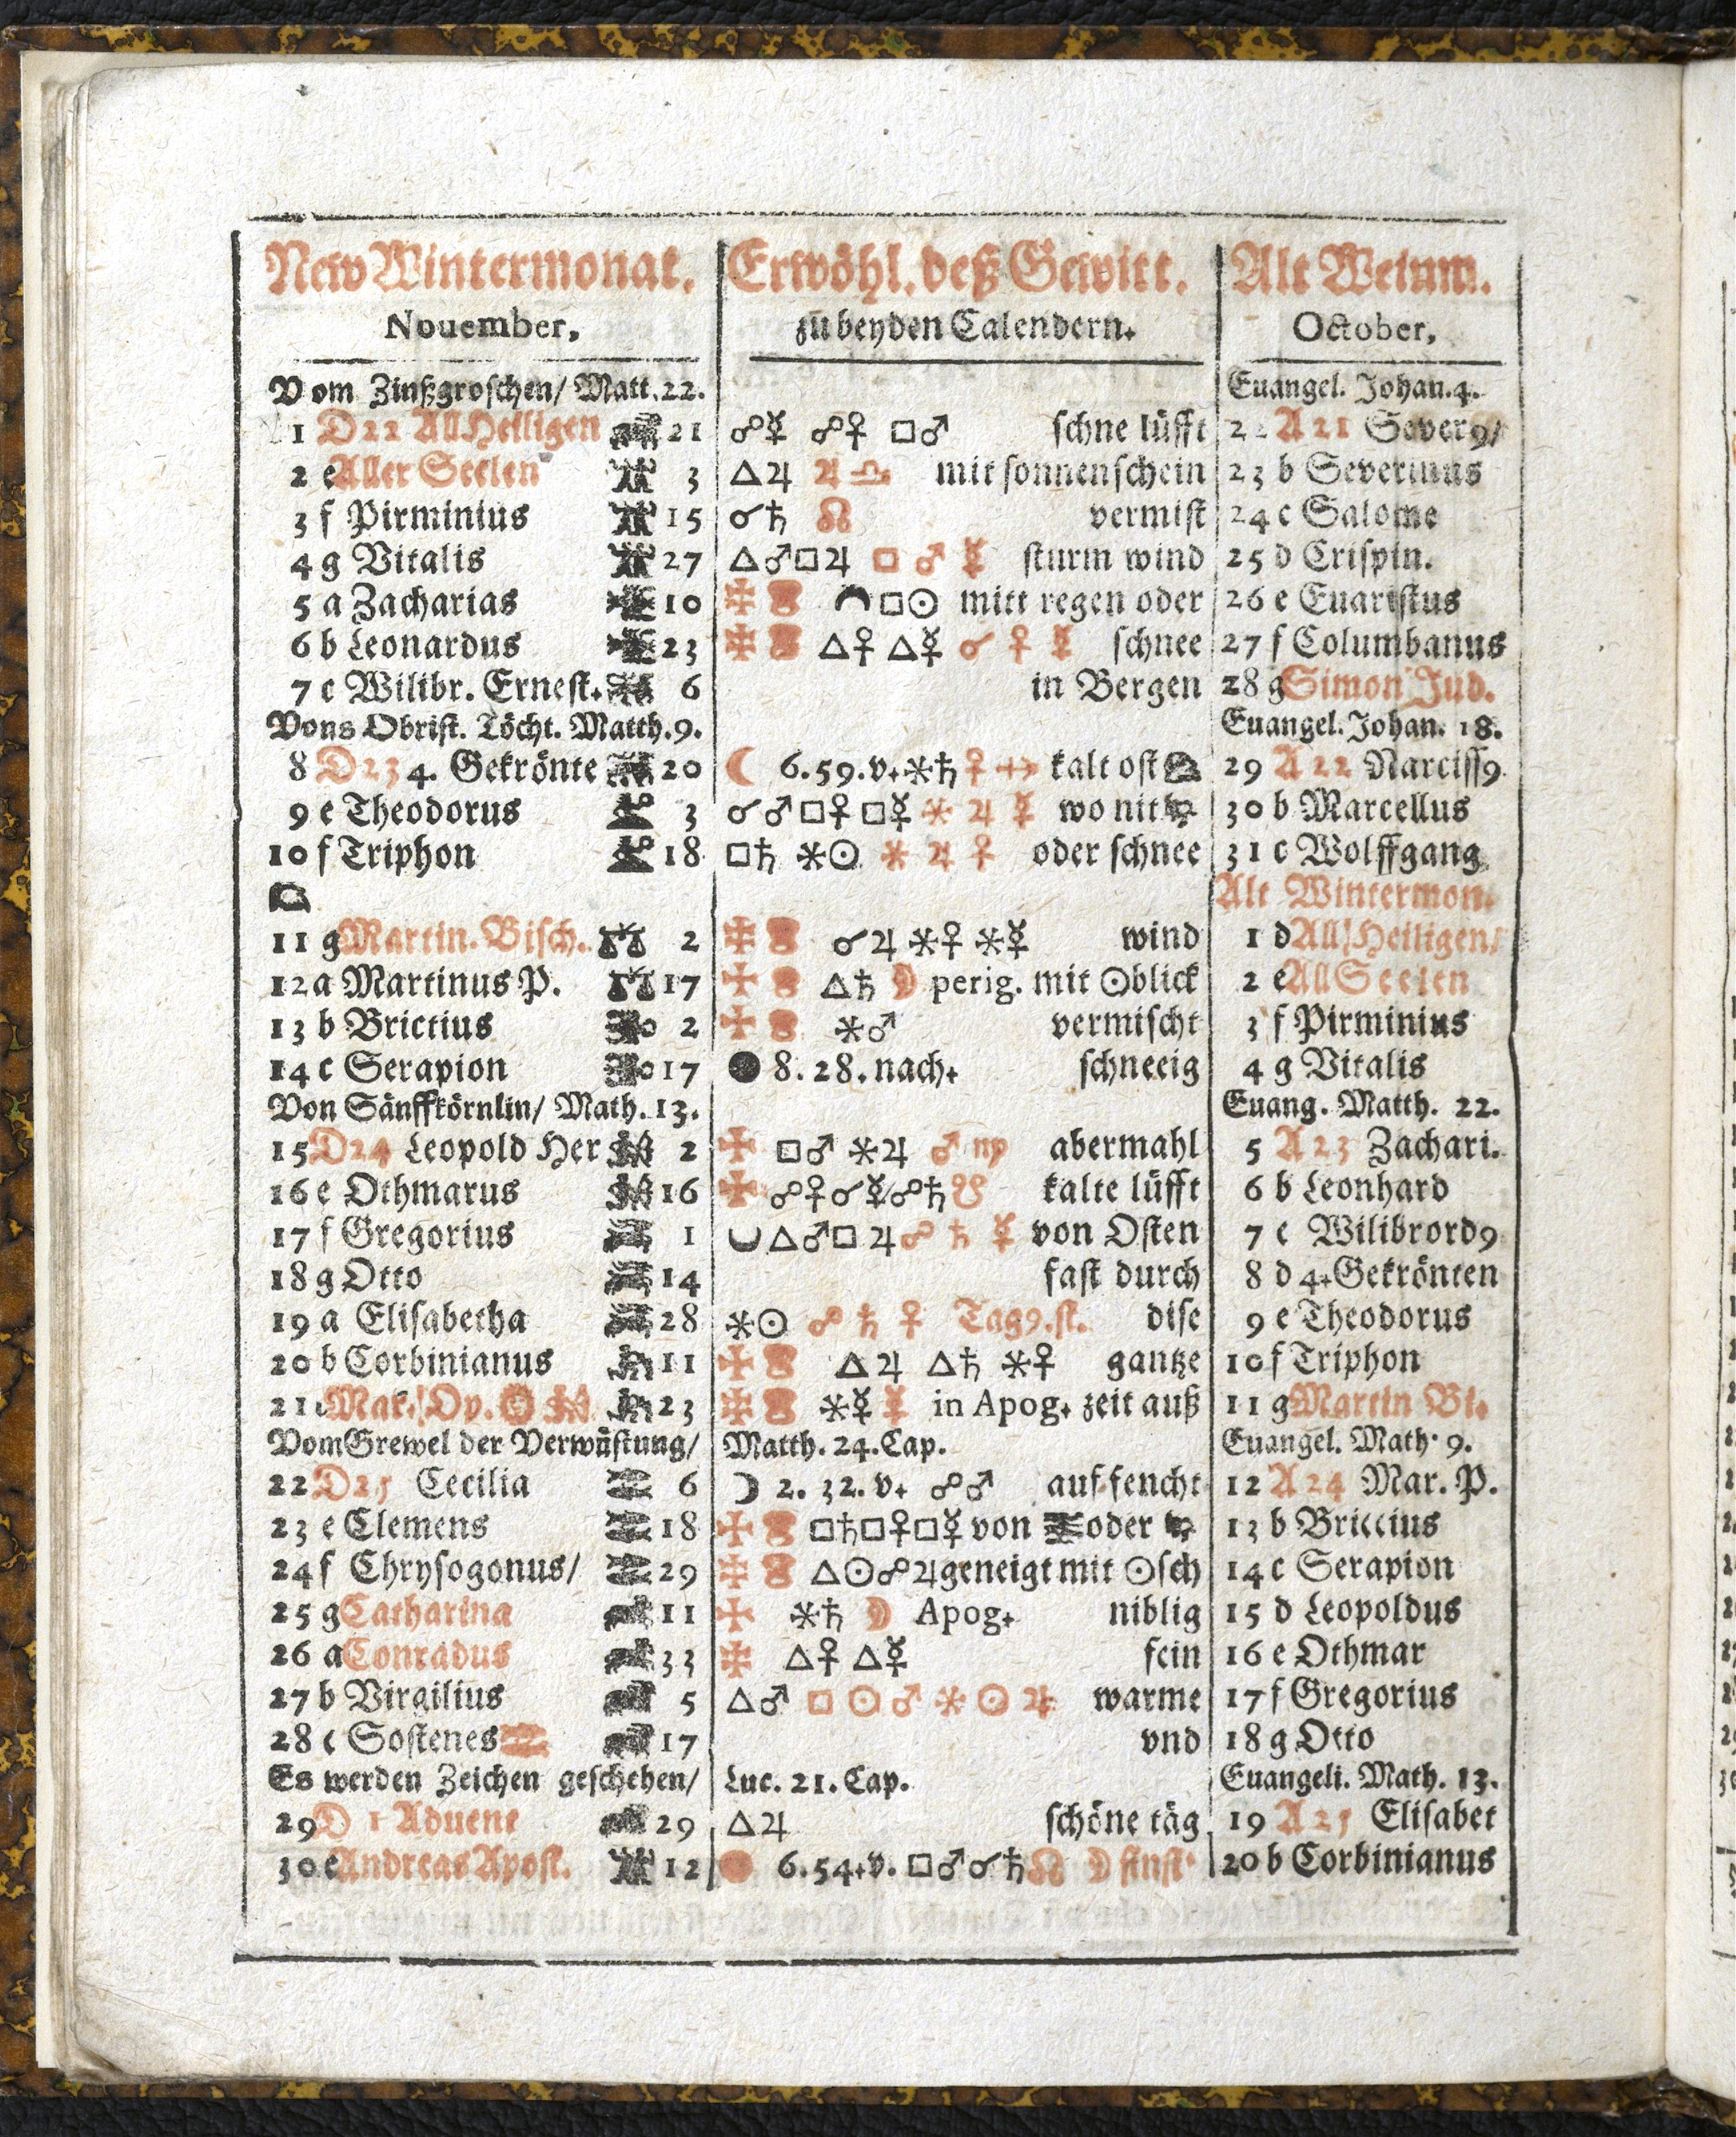 New Wintermonat. Erwöhl. deß Gewitt. Alt Weinm.
Nouember, zu beyden Calendern. October,
Vom Zinßgroschen/ Matt. 22. Euangel. Johan. 4.
1 D 22 All Heiligen 21 ☍☿ ☍♀ □♂ schne lüfft 22 A 21 Sever9/
2 e Aller Seelen 3 △♃ ♃ ♎ mit sonnenschein 23 b Severinus
3 f Pirminius 15 ☌♄ ☊ vermist 24 c Salome
4 g Vitalis 27 △♂□♃ □ ♂ ☿ sturm wind 25 d Crispin.
5 a Zacharias 10 □☉ mitt regen oder 26 e Euaristus
6 b Leonardus 23 △♀ △☿ ☌ ♀ ☿ schnee 27 f Columbanus
7 c Wilibr. Ernest. 6 in Bergen 28 g Simon Jud.
Vons Obrist. Töcht. Matth. 9. Euangel. Johan. 18.
8 D 23 4. Gekrönte 20 ☾ 6. 59. v. ⚹♄ ♀ ♐ kalt ost 29 A 22 Narciss9
9 e Theodorus 3 ☌♂□♀ □☿ ⚹ ♃ ☿ wo nit 30 b Marcellus
10 f Triphon 18 □♄ ⚹☉ ⚹ ♃ ♀ oder schnee 31 c Wolffgang
Alt Wintermon.
11 g Martin. Bisch. 2 ☌♃ ⚹♀ ⚹☿ wind 1 d All Heiligen/
12 a Martinus P. 17 △♄ ☽ perig. mit ☉blick 2 e All Seelen
13 b Brictius 2 ⚹♂ vermischt 3 f Pirminius
14 c Serapion 17 ● 8. 28. nach. schneeig 4 g Vitalis
Von Sänffkörnlin/ Math. 13. Euang. Matth. 22.
15 D 24 Leopold Her 2 □♂ ⚹♃ ♂ ♍ abermahl 5 A 23 Zachari.
16 e Othmarus 16 ☍♀☌☿☍♄ ☋ kalte lüfft 6 b Leonhard
17 f Gregorius 1 △♂□ ♃ ☍ ♄ ☿ von Osten 7 c Wilibrord9
18 g Otto 14 fast durch 8 d 4. Gekrönten
19 a Elisabetha 28 ⚹☉ ☍ ♄ ♀ Tag9. st. dise 9 e Theodorus
20 b Corbinianus 11 △♃ △♄ ⚹♀ gantze 10 f Triphon
21 c Mar. Op. 23 ⚹☿ ☿ in Apog. zeit auß 11 g Martin Bi.
Vom Grewel der Verwüstung/ Matth. 24. Cap. Euangel. Math. 9.
22 D 25 Cecilia 6 ☽ 2. 32. v. ☍♂ auf fencht 12 A 24 Mar. P.
23 e Clemens 18 □♄□♀□☿ von oder 13 b Briccius
24 f Chrysogonus/ 29 △☉☍♃ geneigt mit ☉sch 14 c Serapion
25 g Catharina 11 ⚹♄ ☽ Apog. niblig 15 d Leopoldus
26 a Conradus 33 △♀ △☿ fein 16 e Othmar
27 b Virgilius 5 △♂ □ ☉ ♂ ⚹ ☉ ♃ warme 17 f Gregorius
28 c Sostenes 17 vnd 18 g Otto
Es werden Zeichen geschehen/ Luc. 21. Cap. Euangeli. Math. 13.
29 D 1 Aduent 29 △♃ schöne täg 19 A 25 Elisabet
30 e Andreas Apost. 12 6. 54. v. □♂☌♄ ☊ ☽ finst. 20 b Corbinianus